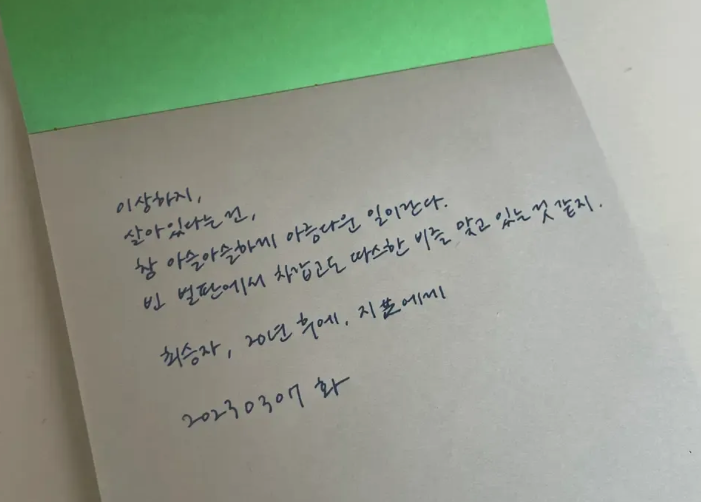 이상하지,
살아있다는 건,
참 아슬아슬하게 아름다운 일이란다.
빈 벌판에서 차갑고도 따스한 비를 맞고 있는 것 같지.
최승자, 20년 후에, 지芝에게
20230307 화